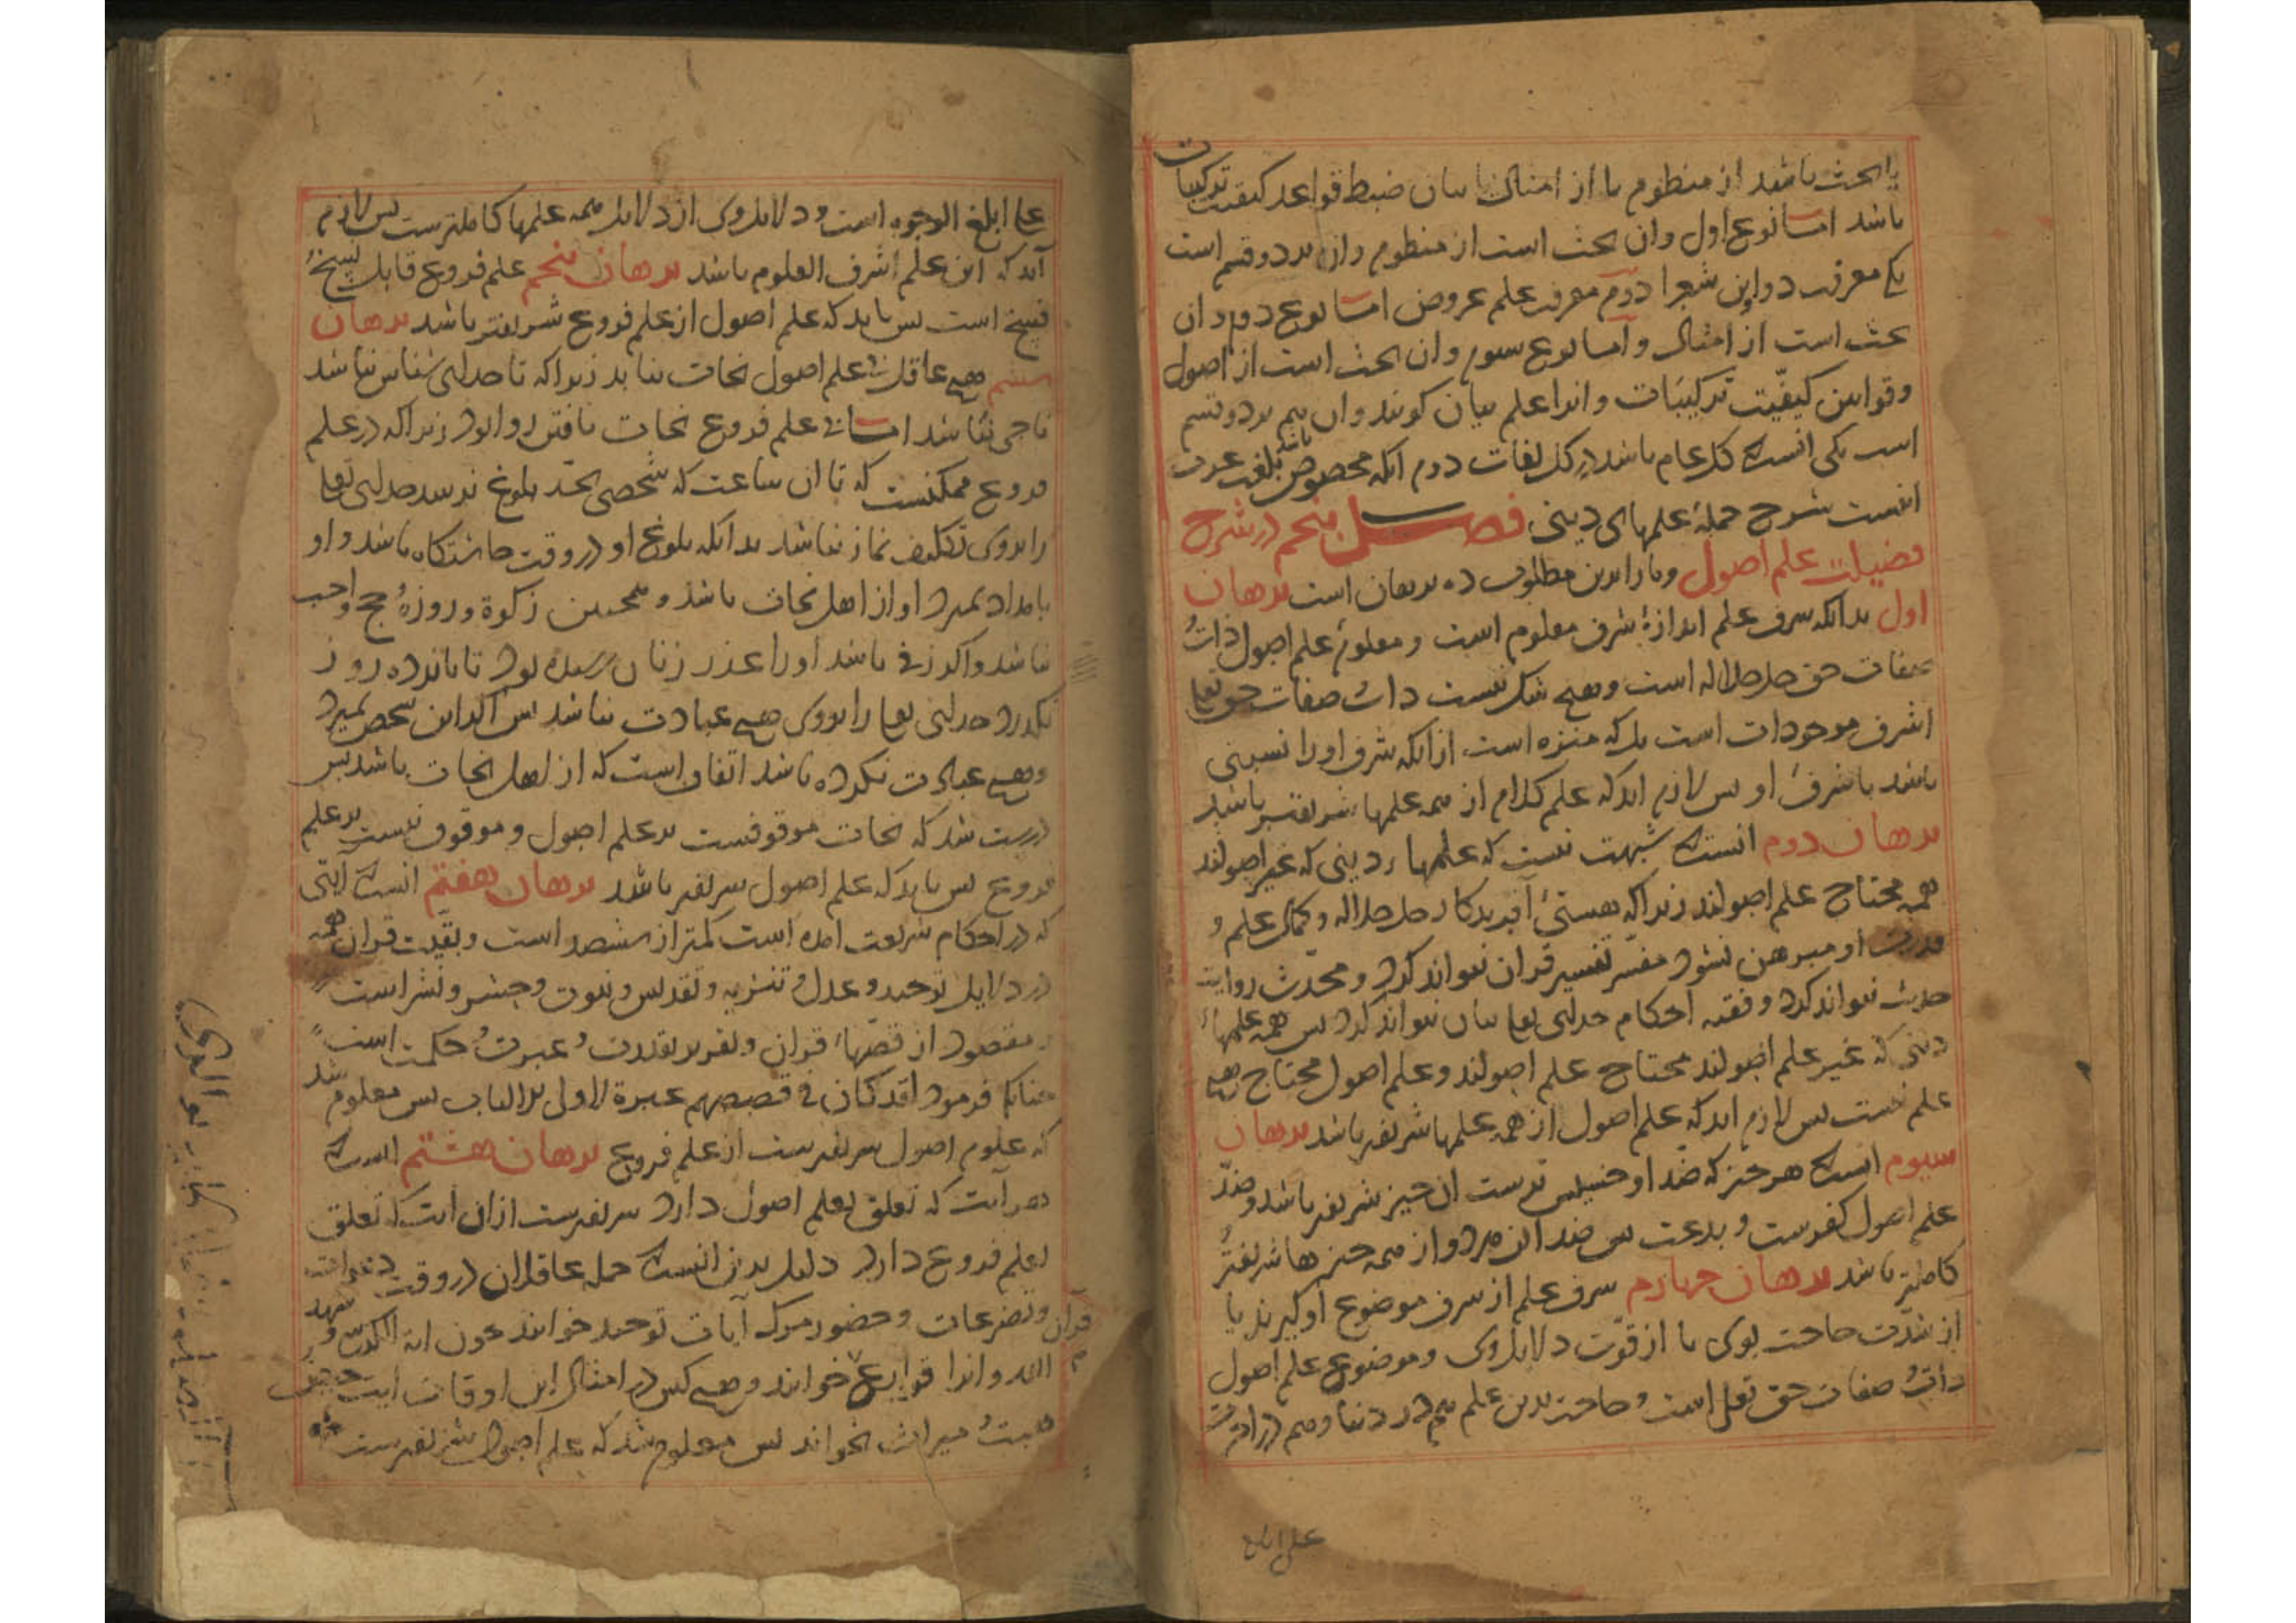 یا بحث باشد از منظوم یا از امثال یا بیان ضبط قواعد کیفیت ترکیبات
باشد اما نوع اول وان بحث است از منظوم وان بر دو قسم است
یکی معرفت دواوین شعرا دوم معرفت علم عروض اما نوع دوم و ان
بحث است از امثال و اما نوع سیوم وان بحث است از اصول
وقوانین کیفیّت ترکیبات وانرا علم بیان کویند وان هم بر دو قسم
است یکی انست که عام باشد در کل لغات دوم انکه مخصوص باشد بلغت عرب
اینست شرح جملهٔ علمهای دینی فصل پنجم در شرح
فضیلت علم اصول و ما را برین مطلوب ده برهان است برهان
اول بدانکه شرف علم اندازهٔ شرف معلوم است و معلوم علم اصول ذات و
صفات حق جل جلاله است و هیچ شک نیست ذات صفات حق تعا
اشرف موجودات است بل که منزه است از انکه شرف او را نسبتی
باشد با شرف او پس لازم اید که علم کلام از همه علمها شریفتر باشد
برهان دوم انست که شبهت نیست که علمهاء دینی که غیر اصولند
همه محتاج علم اصولند زیرا که هستیٔ آفریدکار جل جلاله و کمال علم و
قدرت او مبرهن نشود مفسّر تفسیر قران نتواند کرد و محدّث روایت
حدیث نتواند کرد و فقیه احکام خدای تعا بیان نتواند کرد پس همه علمهاء
دینی که غیر علم اصولند محتاج علم اصولند و علم اصول محتاج هیچ
علم نیست پس لازم اید که علم اصول از همه علمها شریفتر باشد برهان
سیوم انست که هر چیز که ضد او خسیس ترست ان چیز شریفتر باشد و ضدّ
علم اصول کفرست و بدعت پس ضد ان هر دو از همه چیزها شریفتر و
کاملتر باشد برهان چهارم شرف علم از شرف موضوع او کیرند یا
از شدّت حاجت بوی یا از قوّت دلایل وی و موضوع علم اصول
ذات و صفات حق تعلی است و حاجت بدین علم هم در دنیا و هم در اخرت
علی ابلغ
علی ابلغ الوجوه است و دلایل وی از دلایل همه علمها کاملترست پس لازم
آید که این علم اشرف العلوم باشد برهان پنجم علم فروع قابل نسخ و
فسخ است پس باید که علم اصول از علم فروع شریفتر باشد برهان
ششم هیچ عاقل بی علم اصول نجات نیابد زیرا که تا خدای شناس نباشد
ناجی نباشد اما بی علم فروع نجات یافتن روا بود زیرا که در علم
فروع ممکنست که تا ان ساعت که شخصی بحد بلوغ نرسد خدای تعا
را بر وی تکلیف نماز نباشد بدانکه بلوغ او در وقت چاشتکاه باشد و او
بامداد بمیرد او از اهل نجات باشد و همچنین زکوة و روزه و حج واجب
نباشد و اکر زنی باشد او را عذر زنان رسیده بود تا پانزده روز
بکذرد خدای تعا را بر وی هیچ عبادت نباشد پس اکر این شخص بمیرد
و هیچ عبادت نکرده باشد اتفاق است که از اهل نجات باشد پس
درست شد که نجات موقوفست بر علم اصول و موقوف نیست بر علم
فروع پس باید که علم اصول شریفتر باشد برهان هفتم انست که آیتی
که در احکام شریعت امده است کمتر از ششصد است و بقیّت قران همه
در دلایل توحید و عدل و تنزیه و تقدیس و نبوت و حشر و نشر است
و مقصود از قصّهاء قران و تقریر بقدرت و عبرت و حکمت است
چنانکه فرمود لقد کان فی قصصهم عبرة لاولی الالباب پس معلوم شد
که علوم اصول شریفترست از علم فروع برهان هشتم انست که
هر آیت که تعلق بعلم اصول دارد شریفترست از ان ایت که تعلق
بعلم فروع دارد دلیل برین انست که جمله عاقلان در وقت دعوات
قران و تضرعات و حضور مرک آیات توحید خوانند چون ایة الکرسی و شهد
الله وانرا قوارع خوانند و هیچ کس در امثال این اوقات ایت حیض
هبت و میراث نخواند پس معلوم شد که علم اصول شریفترست